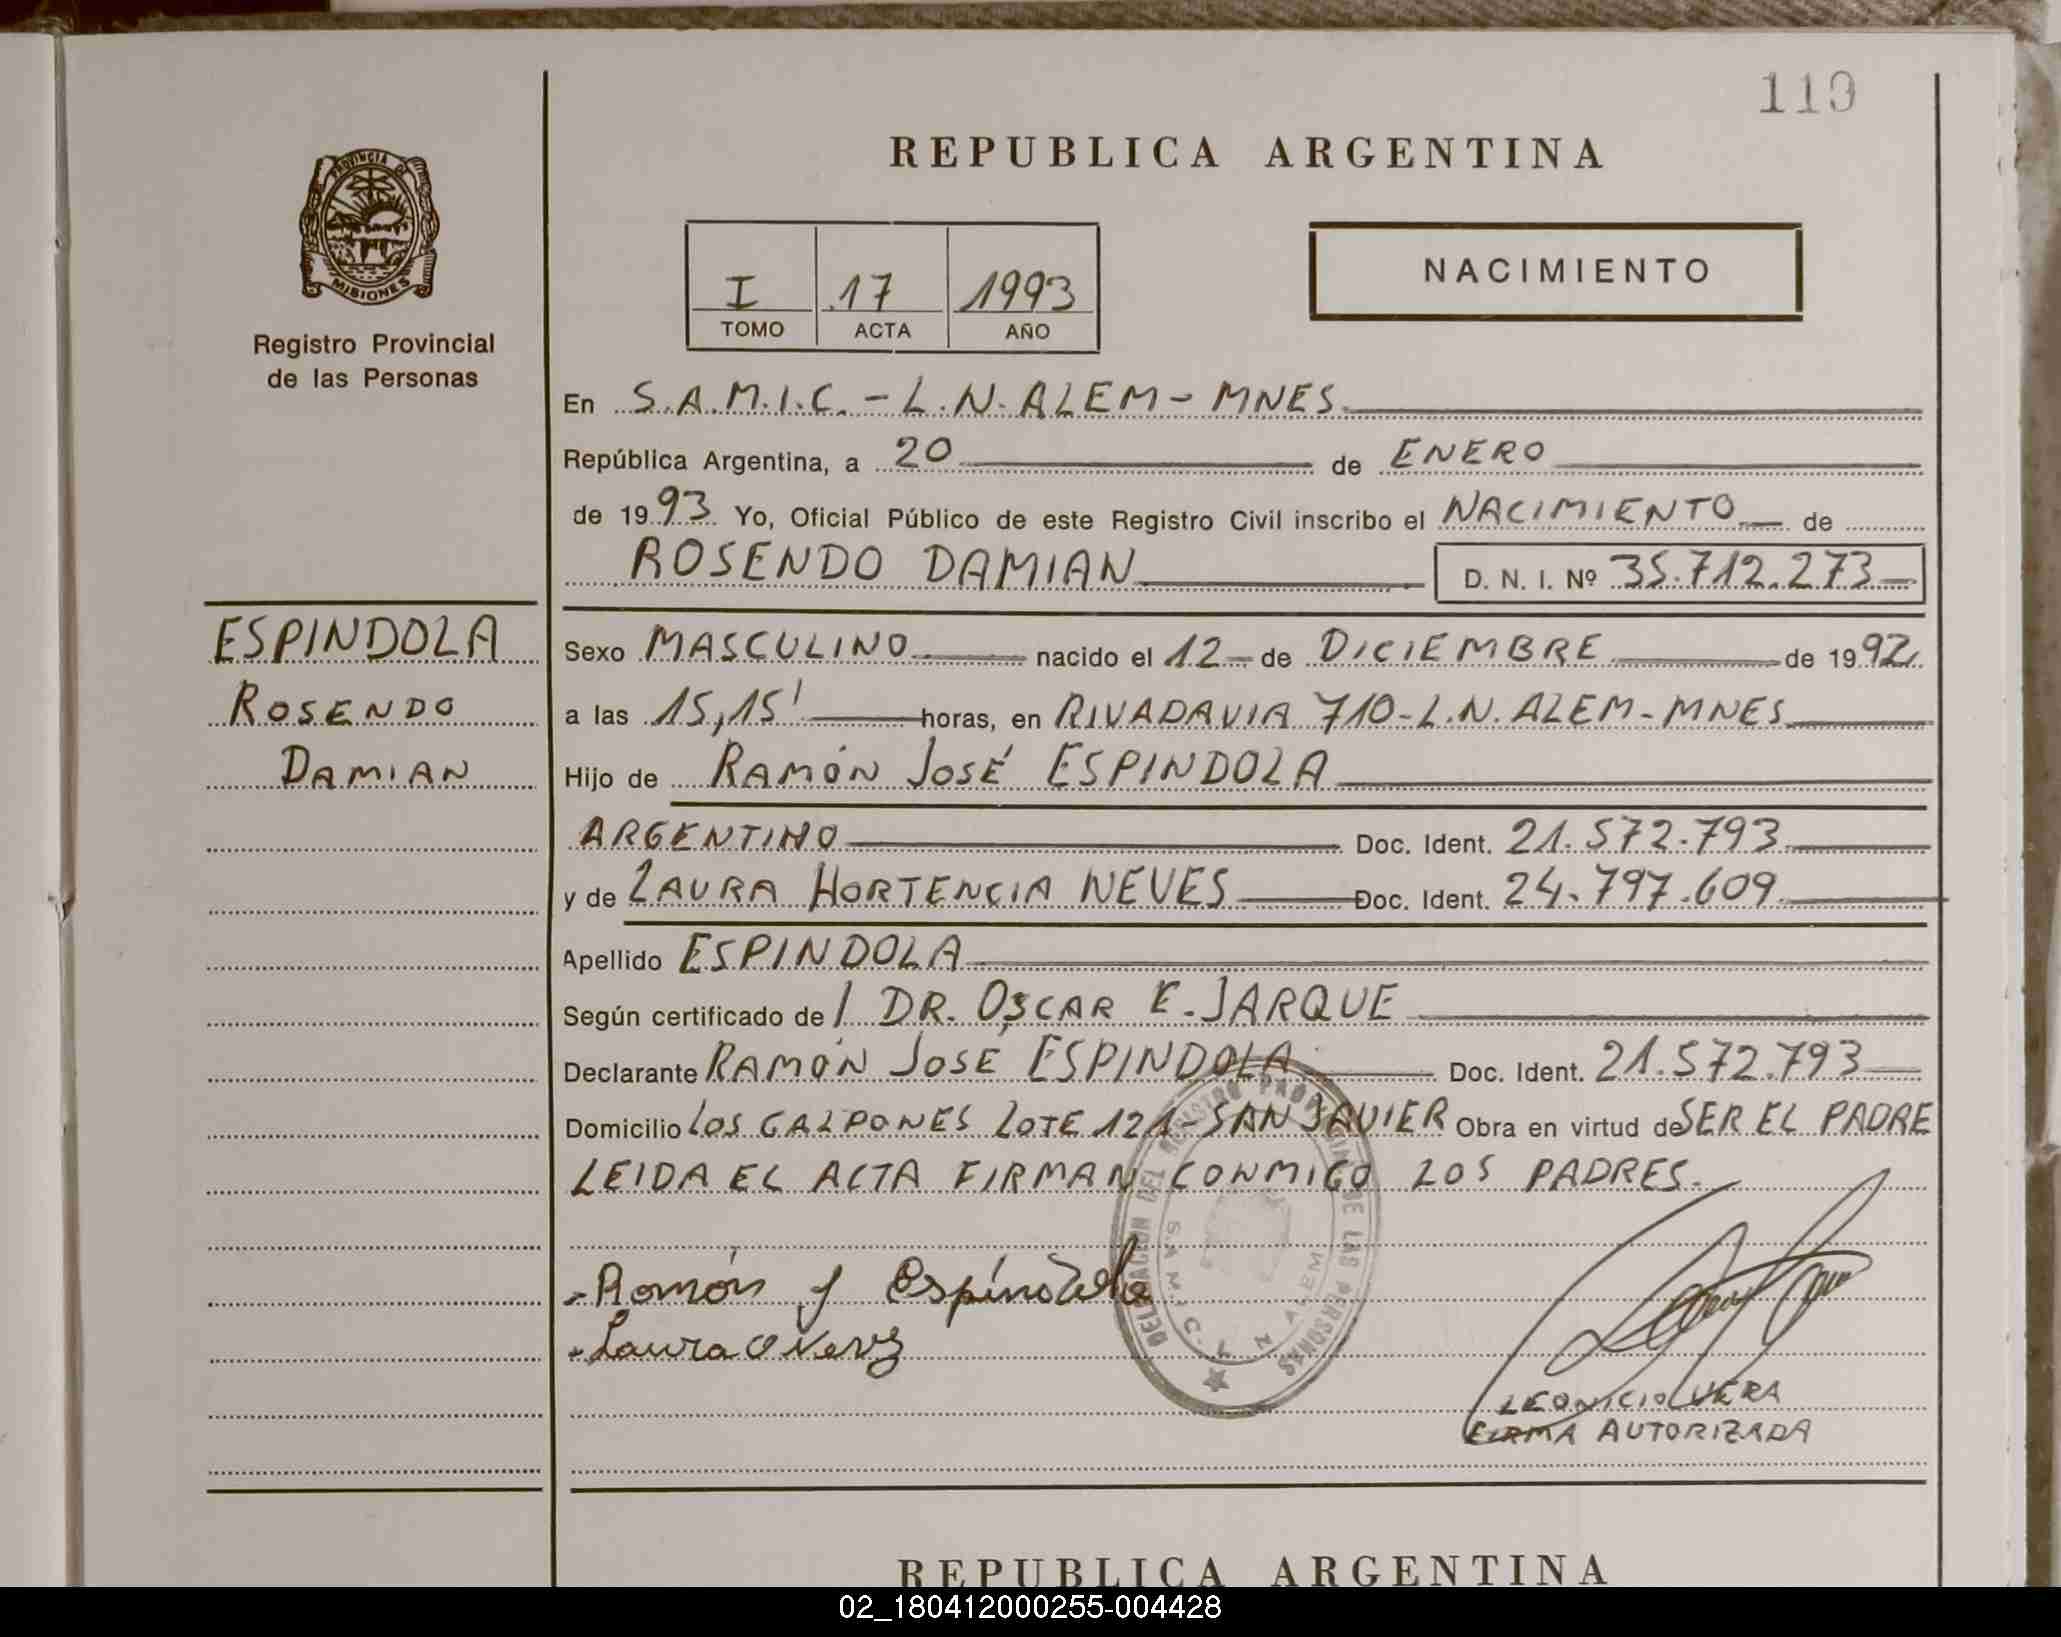 110
REPUBLICA ARGENTINA
PROVINCIA DE
MISIONES
Registro Provincial
de las Personas
I 17 1993
TOMO ACTA AÑO
NACIMIENTO
En S.A.M.I.C. - L.N. ALEM - MNES.
República Argentina, a 20 de ENERO
de 1993 Yo, Oficial Público de este Registro Civil inscribo el NACIMIENTO de
ROSENDO DAMIAN D. N. I. Nº 35.712.273
ESPINDOLA
ROSENDO
DAMIAN
Sexo MASCULINO nacido el 12 de DICIEMBRE de 1992
a las 15,15' horas, en RIVADAVIA 710 - L.N. ALEM - MNES
Hijo de RAMÓN JOSÉ ESPINDOLA
ARGENTINO Doc. Ident. 21.572.793
y de LAURA HORTENCIA NEVES Doc. Ident. 24.797.609
Apellido ESPINDOLA
Según certificado de / DR. OSCAR E. JARQUE
Declarante RAMÓN JOSÉ ESPINDOLA Doc. Ident. 21.572.793
Domicilio LOS GALPONES LOTE 121 - SAN JAVIER Obra en virtud de SER EL PADRE
LEIDA EL ACTA FIRMAN CONMIGO LOS PADRES.
Ramón J Espíndola
Laura O Neves
DELEGACION DEL REGISTRO PROVINCIAL DE LAS PERSONAS
S.A.M.I.C. L N ALEM
LEONICIO VERA
FIRMA AUTORIZADA
REPUBLICA ARGENTINA
02_180412000255-004428